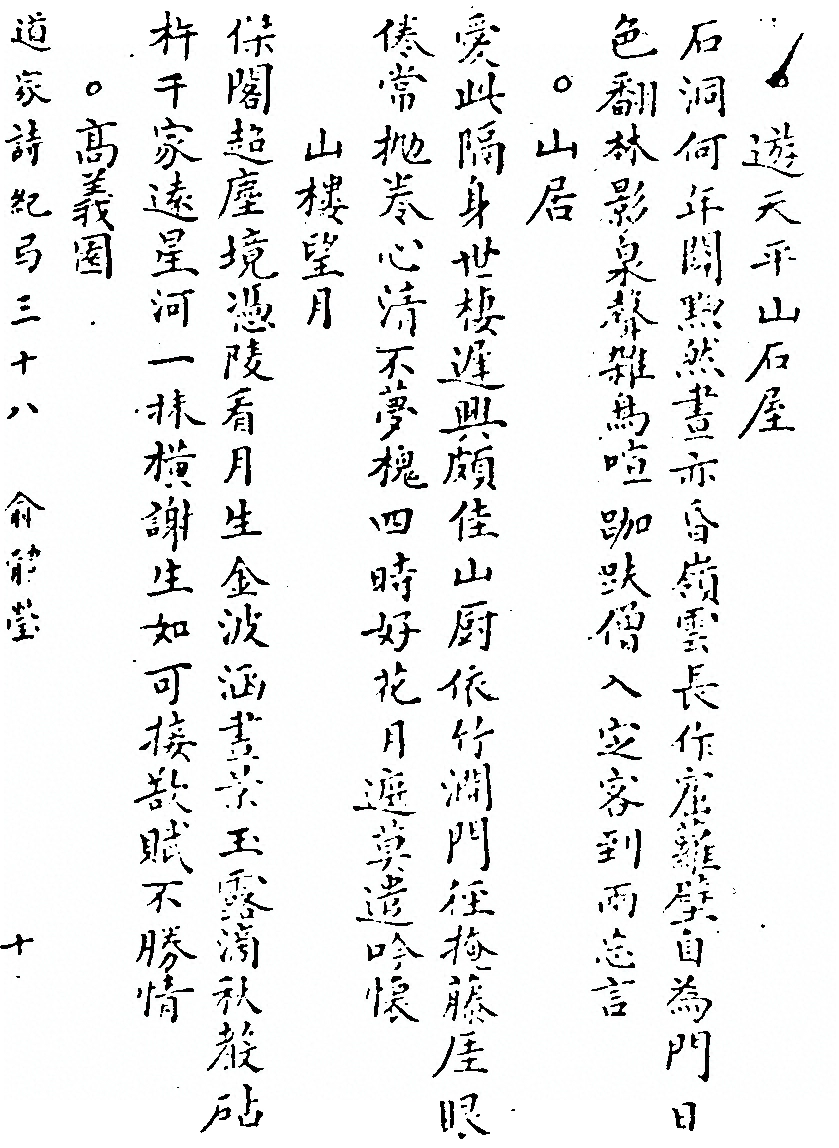 遊天平山石屋
石洞何年闢黝然晝亦昏嶺雲長作宿蘿壁自為門日
色翻林影泉聲雜鳥喧跏趺僧入定客到兩忘言
山居
愛此隔身世棲遲興頗佳山厨依竹澗門徑掩藤厓眼
倦常抛卷心清不夢槐四時好花月遮莫遣吟懷
山樓望月
傑閣超塵境憑陵看月生金波涵畫栱玉露滴秋聲砧
杵千家遠星河一抹横謝生如可接欲賦不勝情
高義園
道家詩紀局三十八 俞體瑩 十